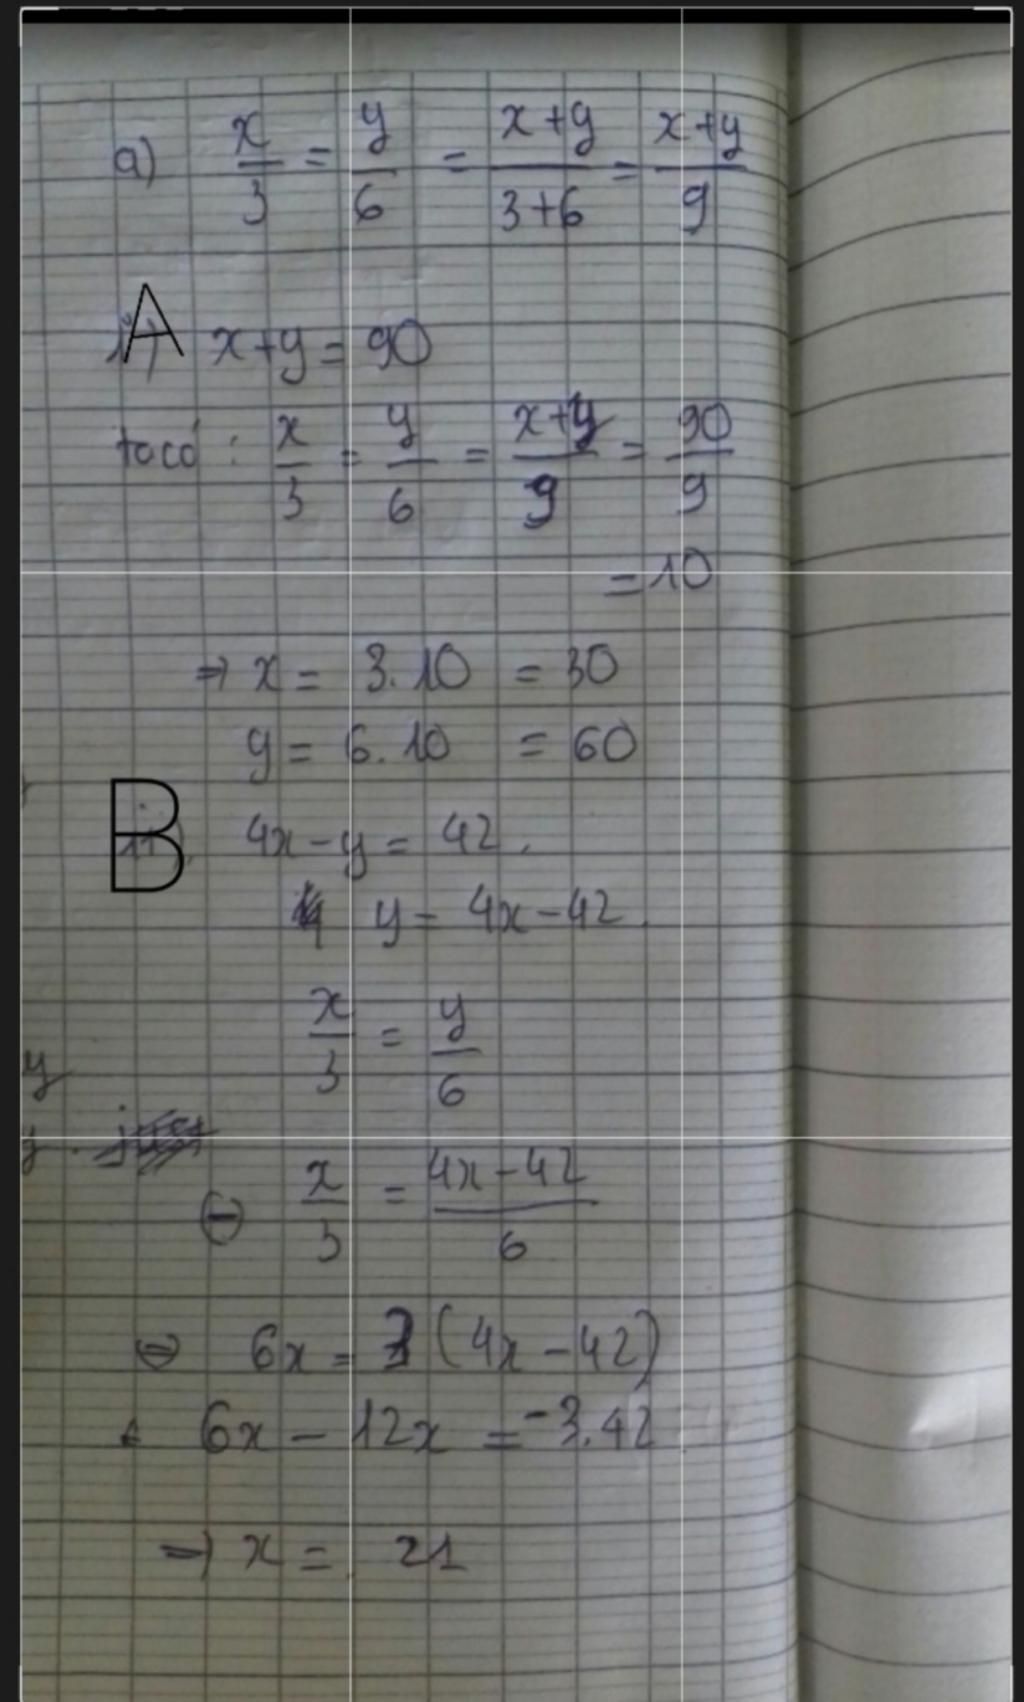 a) x/3 = y/6 = x+y/3+6 = x+y/9
A x+y = 90
ta có : x/3 = y/6 = x+y/9 = 90/9
= 10
⇒ x = 3.10 = 30
y = 6.10 = 60
B 4x-y = 42.
y = 4x-42.
x/3 = y/6
y
x/3 = 4x-42/6
⇔ 6x = 3(4x-42)
6x - 12x = -3.42
⇒ x = 21